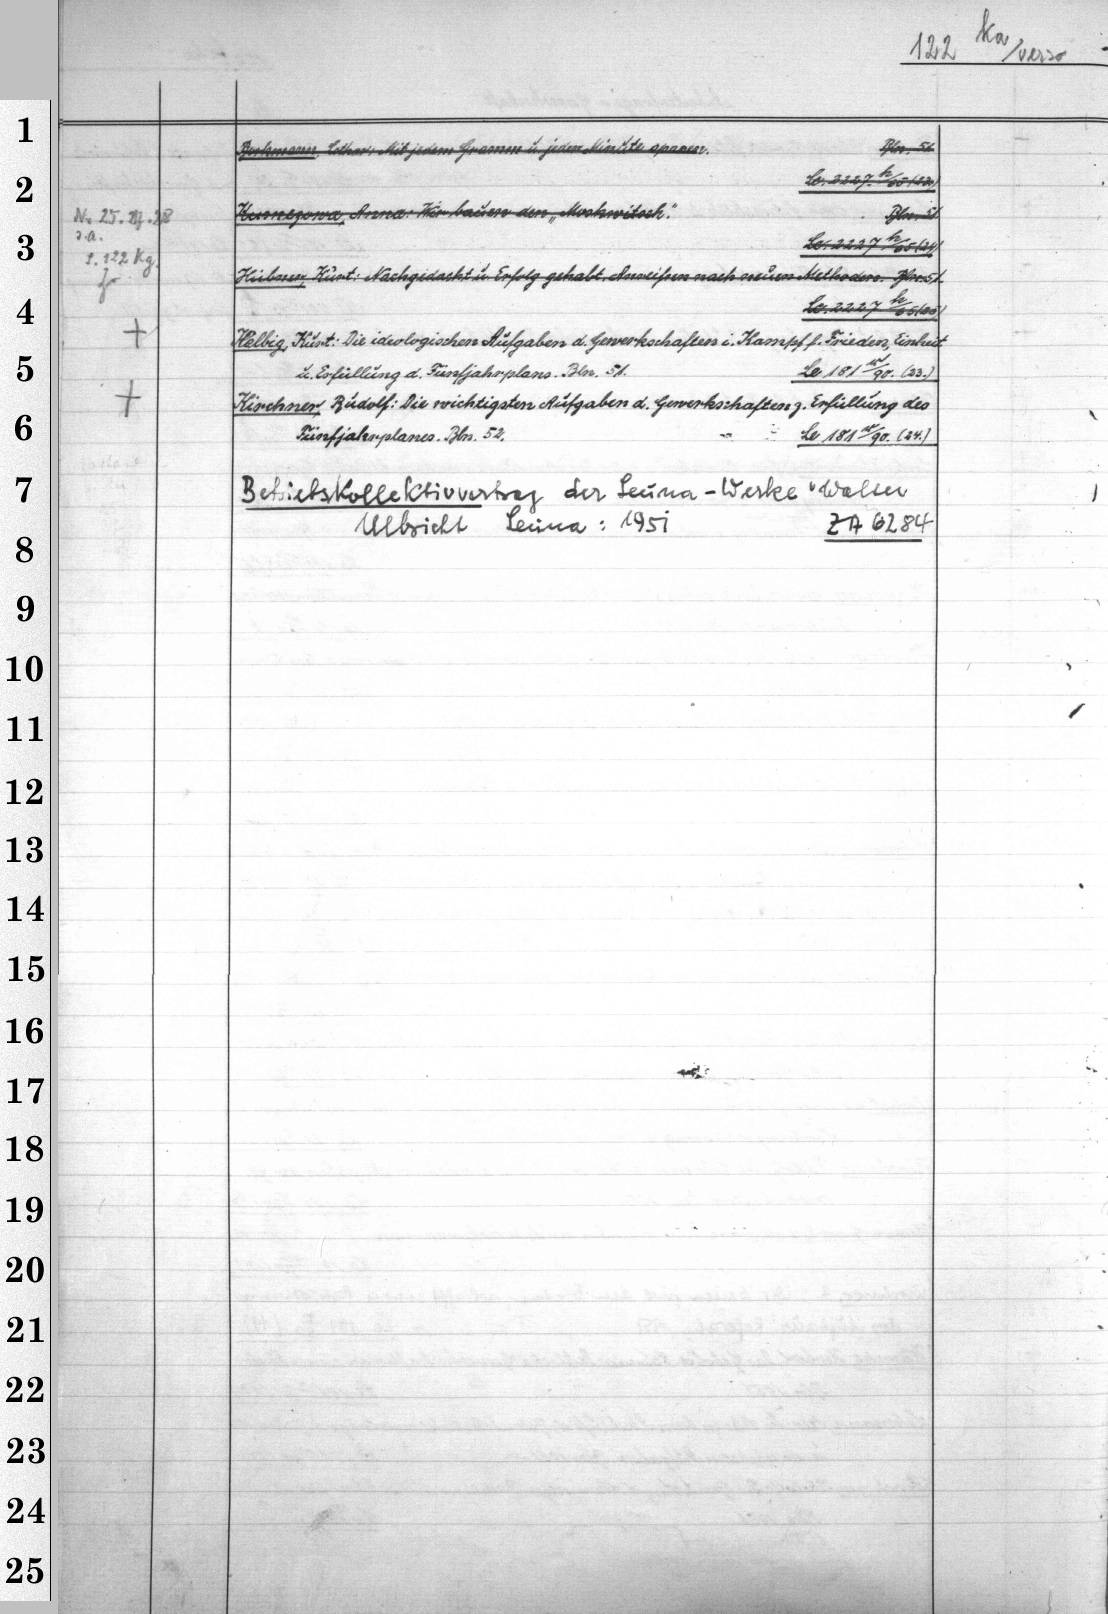 122 ka/verso
1
Lothar: Mit jedem Gramm u. jeder Minute sparen. Bln. 51
2
Le. 2227 h/65 (23)
Nr. 25.
Kusnezowa, Anna: Wir bauen den „Moskwitsch“. Bln. 51
s.a.
3
Le. 2227 h/65 (24)
S. 122 Kg.
Hübner, Kurt: Nachgedacht u. Erfolg gehabt. Anreißen nach neuen Methoden. Bln. 51.
4
Le. 2227 h/65 (25)
+
Helbig, Kurt: Die ideologischen Aufgaben d. Gewerkschaften i. Kampf f. Frieden, Einheit
5
u. Erfüllung d. Fünfjahrplans. Bln. 51. Le 181 w/90. (23.)
+
Kirchner, Rudolf: Die wichtigsten Aufgaben d. Gewerkschaften z. Erfüllung des
6
Fünfjahrplanes. Bln. 52. Le 181 w/90. (24.)
7
Betriebskollektivvertrag der Leuna-Werke "Walter
Ulbricht Leuna: 1951 ZA 6284
8
9
10
11
12
13
14
15
16
17
18
19
20
21
22
23
24
25